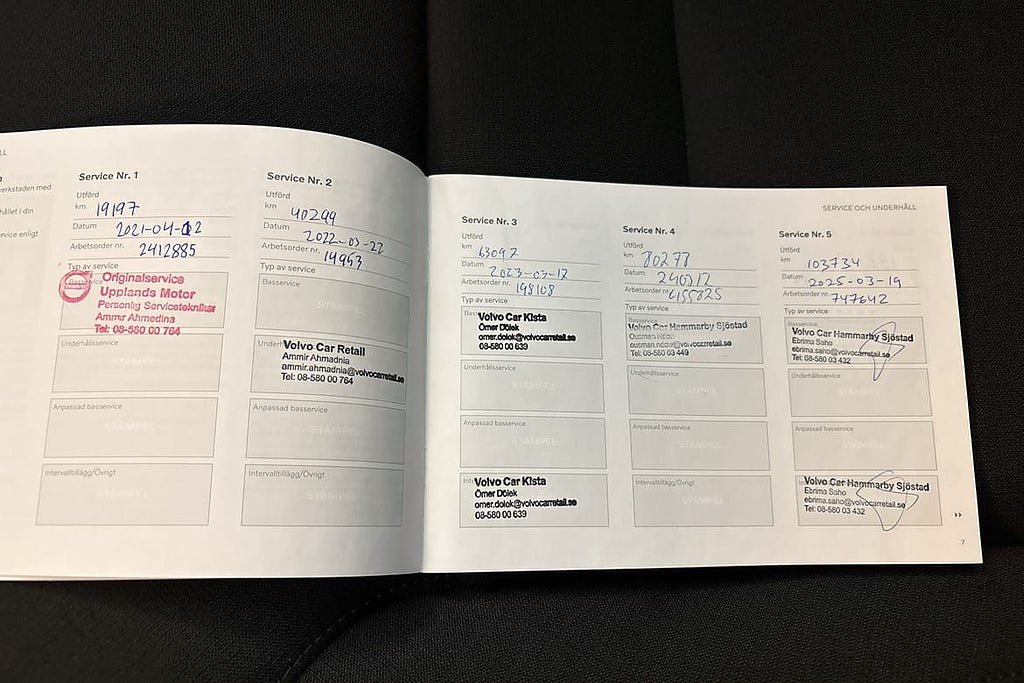 LL
verkstaden med
hållet i din
rvice enligt
Service Nr. 1
Utförd
km 19197
Datum 2021-04-12
Arbetsorder nr. 2412885
Typ av service
Basservice
Originalservice
Upplands Motor
Personlig Servicetekniker
Ammir Ahmedina
Tel: 08-580 00 764
Underhållsservice
STÄMPEL
Anpassad basservice
STÄMPEL
Intervalltillägg/Övrigt
STÄMPEL
Service Nr. 2
Utförd
km 40299
Datum 2022-03-22
Arbetsorder nr. 14953
Typ av service
Basservice
STÄMPEL
Underh
Volvo Car Retail
Ammir Ahmadnia
ammir.ahmadnia@volvocarretail.se
Tel: 08-580 00 764
Anpassad basservice
STÄMPEL
Intervalltillägg/Övrigt
STÄMPEL
SERVICE OCH UNDERHÅLL
Service Nr. 3
Utförd
km 63092
Datum 2023-03-17
Arbetsorder nr. 198108
Typ av service
Bas
Volvo Car Kista
Ömer Dölek
omer.dolek@volvocarretail.se
08-580 00 639
Underhållsservice
STÄMPEL
Anpassad basservice
STÄMPEL
Volvo Car Kista
Ömer Dölek
omer.dolek@volvocarretail.se
08-580 00 639
Service Nr. 4
Utförd
km 80278
Datum 240312
Arbetsorder nr.
Typ av service
Basservice
Volvo Car Hammarby Sjöstad
Ousman Ndow
ousman.ndow@volvocarretail.se
Tel: 08-580 03 449
Underhållsservice
STÄMPEL
Anpassad basservice
STÄMPEL
Intervalltillägg/Övrigt
STÄMPEL
Service Nr. 5
Utförd
km 103734
Datum 2025-03-19
Arbetsorder nr. 747642
Typ av service
Basservice
Volvo Car Hammarby Sjöstad
Ebrima Saho
ebrima.saho@volvocarretail.se
Tel: 08-580 03 432
Underhållsservice
STÄMPEL
Anpassad basservice
STÄMPEL
Volvo Car Hammarby Sjöstad
Ebrima Saho
ebrima.saho@volvocarretail.se
Tel: 08-580 03 432
7